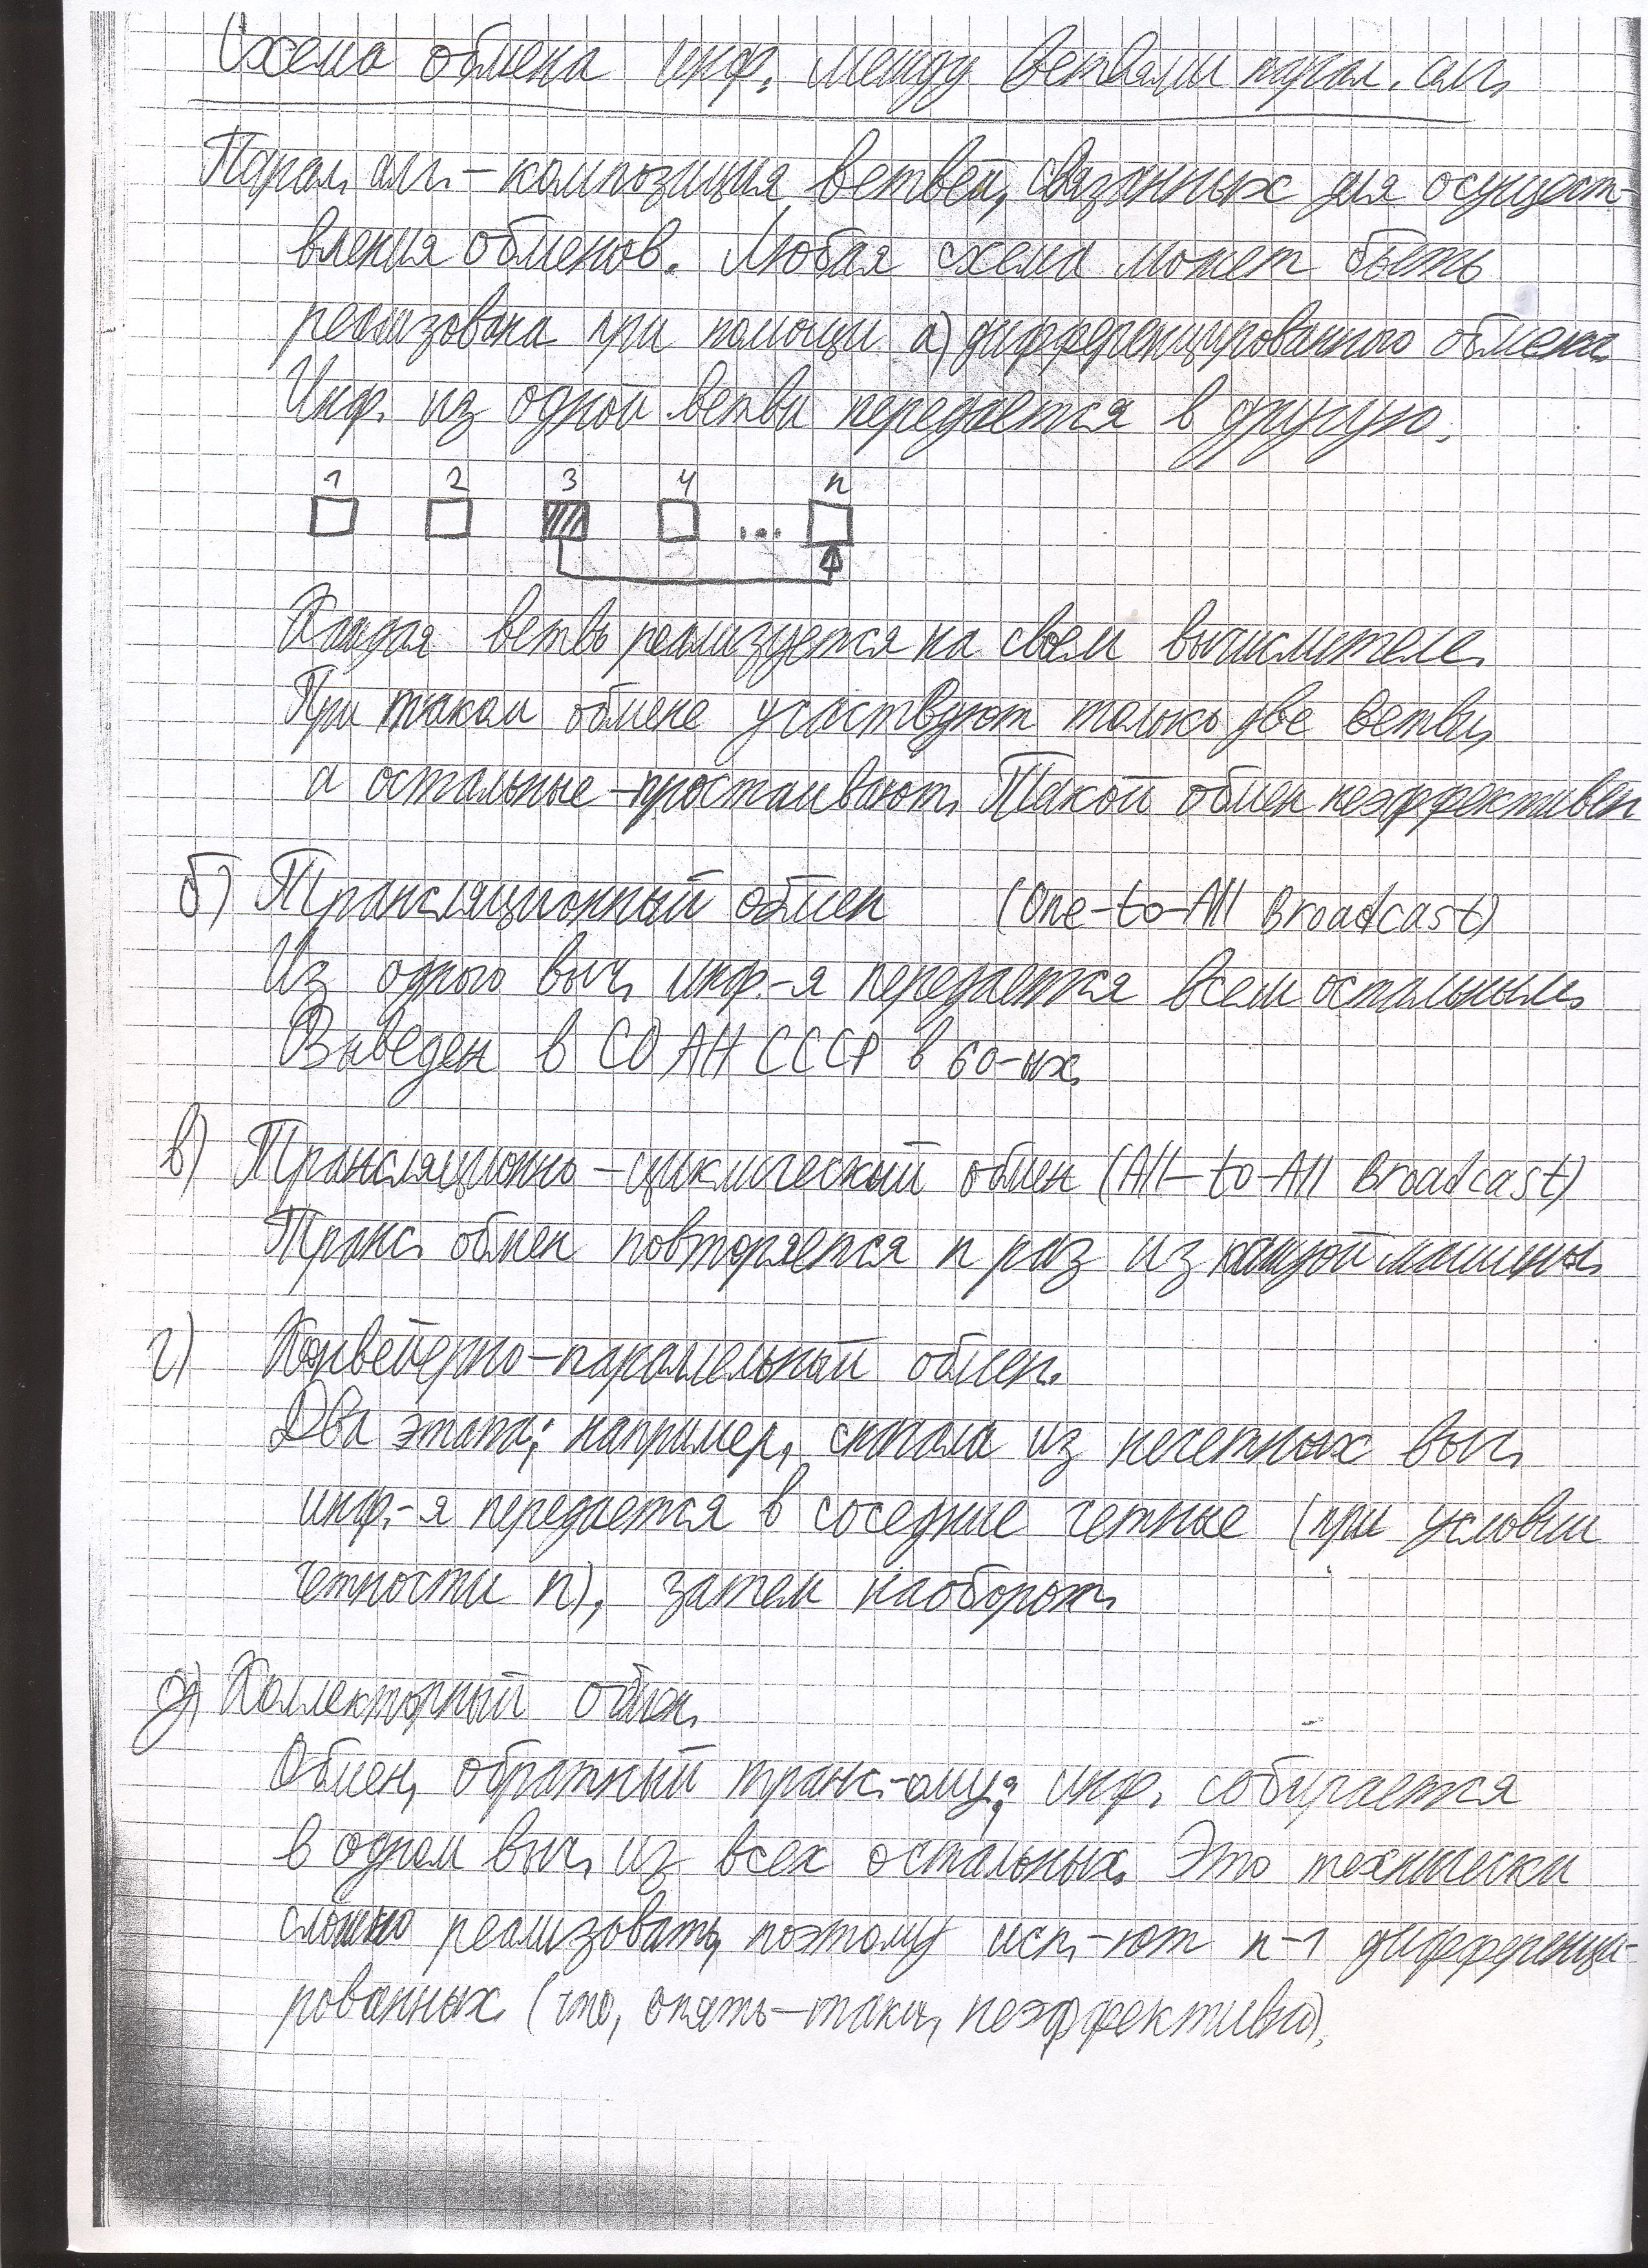 Схема обмена инф. между ветвями парал. алг.
Парал. алг. – композиция ветвей, связанных для осущест-
вления обменов. Любая схема может быть
реализована при помощи а) дифференцированного обмена
Инф. из одной ветви передается в другую.
1 2 3 4 ... n
Каждая ветвь реализуется на своем вычислителе.
При таком обмене участвуют только две ветви,
а остальные – простаивают. Такой обмен неэффективен
б) Трансляционный обмен (One-to-All Broadcast)
Из одного выч. инф.-я передается всем остальным.
Выведен в СО АН СССР в 60-ых.
в) Трансляционно-циклический обмен (All-to-All Broadcast)
Транс. обмен повторяется n раз из каждой машины.
г) Конвейерно-параллельный обмен.
Два этапа; например, сначала из нечетных выч.
инф.-я передается в соседние четные (при условии
четности n), затем наоборот.
д) Коллекторный обмен.
Обмен, обратный транс.-ому; инф. собирается
в одном выч. из всех остальных. Это технически
сложно реализовать, поэтому исп.-ют n-1 дифференци-
рованных (что, опять-таки, неэффективно).